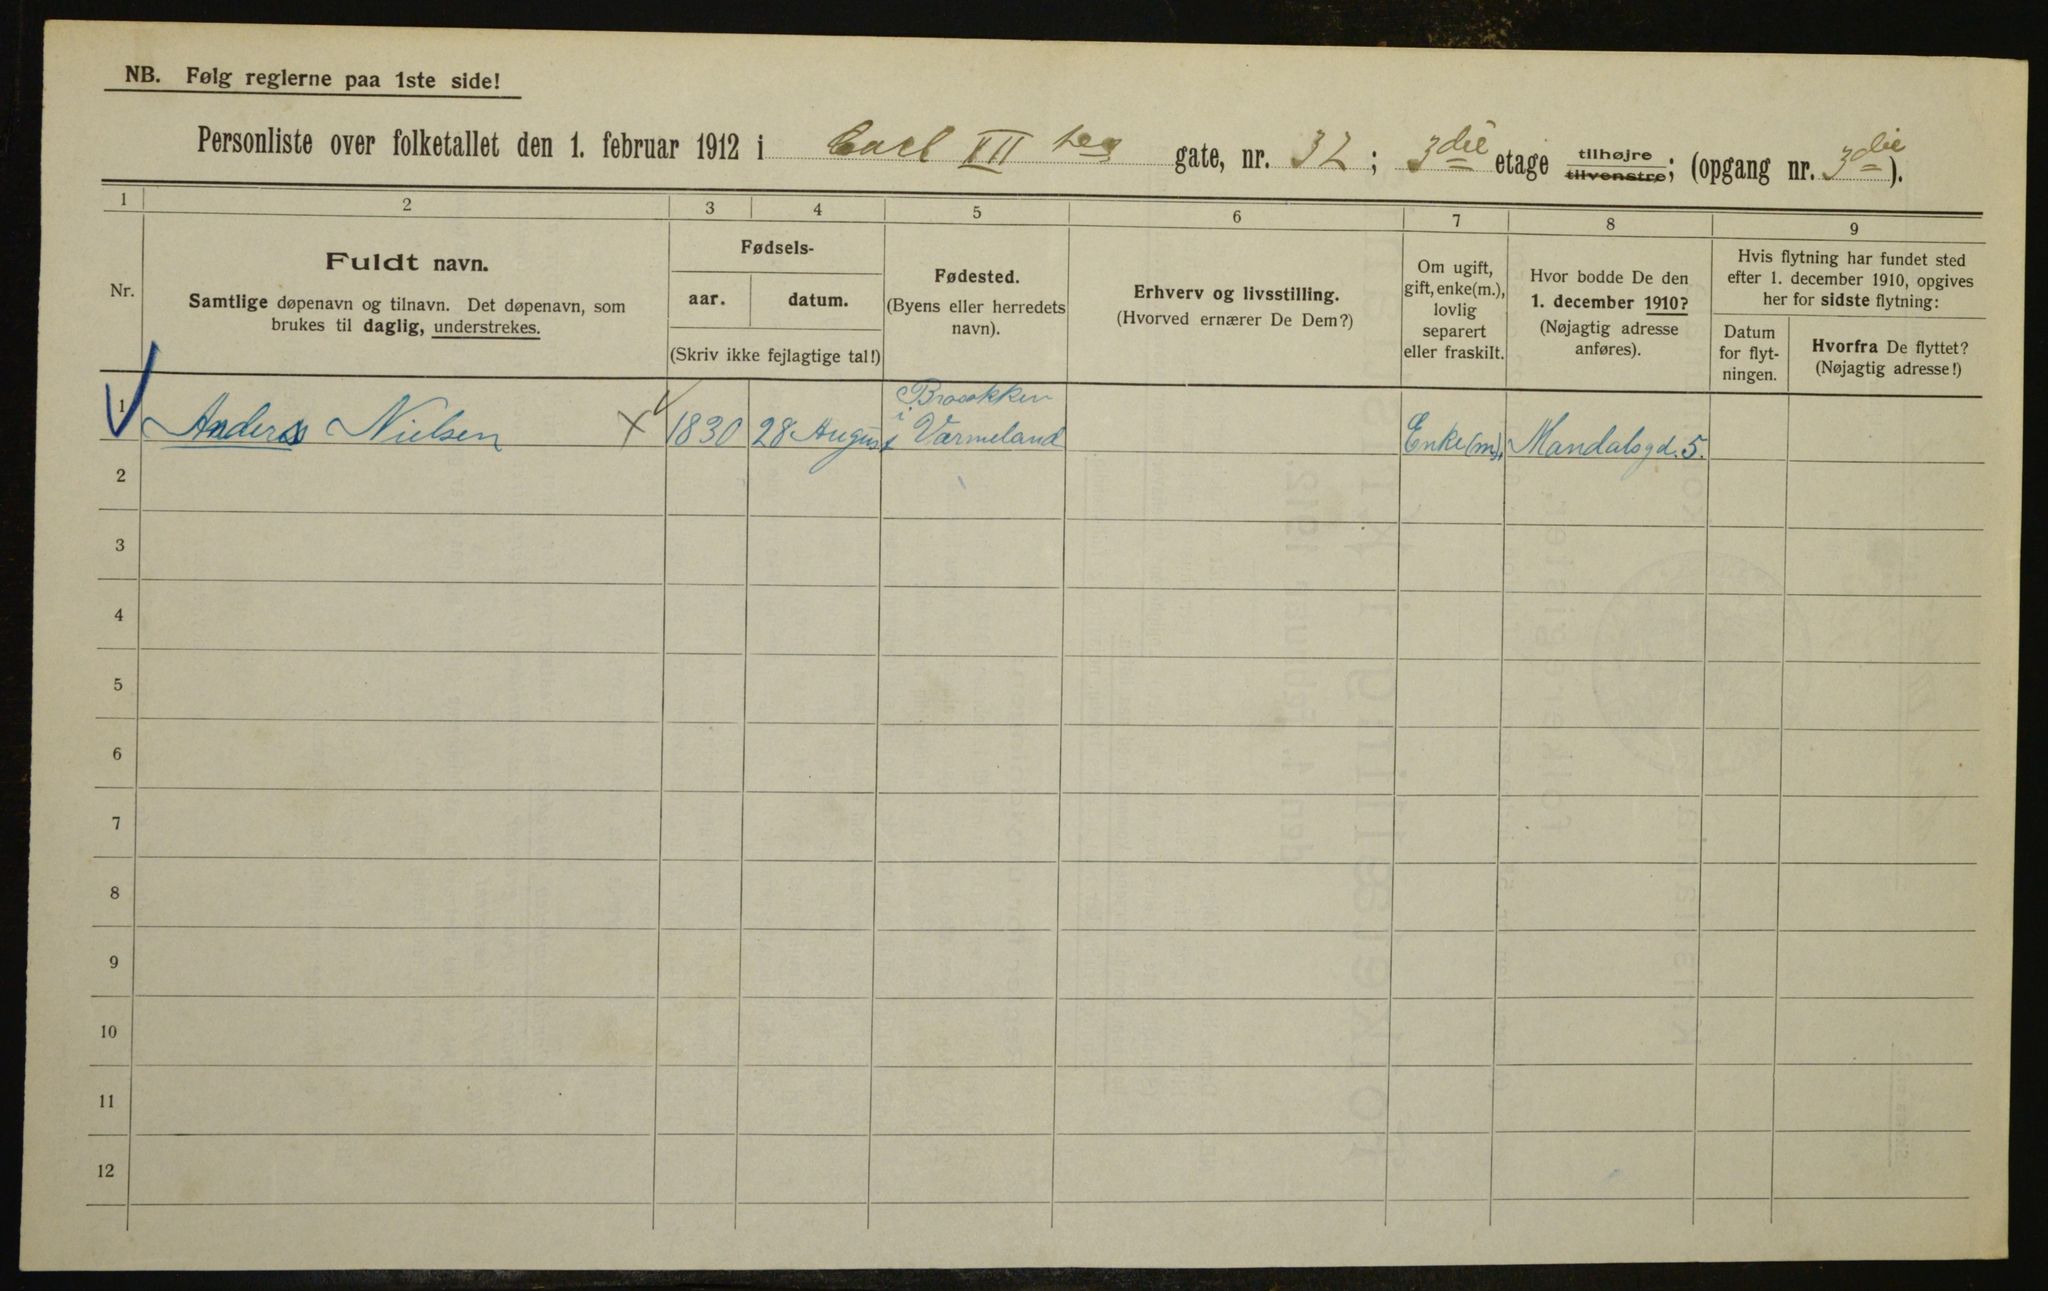 NB. Følg reglerne paa 1ste side!
Personliste over folketallet den 1. februar 1912 i Carl XII tes gate, nr. 32; 3die etage tilhøjre tilvenstre; (opgang nr. 3die).
1 2 3 4 5 6 7 8 9
Nr.
Fuldt navn.
Samtlige døpenavn og tilnavn. Det døpenavn, som
brukes til daglig, understrekes.
Fødsels-
aar. datum.
(Skriv ikke fejlagtige tal!)
Fødested.
(Byens eller herredets
navn).
Erhverv og livsstilling.
(Hvorved ernærer De Dem?)
Om ugift,
gift, enke(m.),
lovlig
separert
eller fraskilt.
Hvor bodde De den
1. december 1910?
(Nøjagtig adresse
anføres).
Hvis flytning har fundet sted
efter 1. december 1910, opgives
her for sidste flytning:
Datum
for flyt-
ningen.
Hvorfra De flyttet?
(Nøjagtig adresse!)
1 Anders Nielsen 1830 28 August i Värmeland Enke(m). Mandalsgd. 5.
2
3
4
5
6
7
8
9
10
11
12